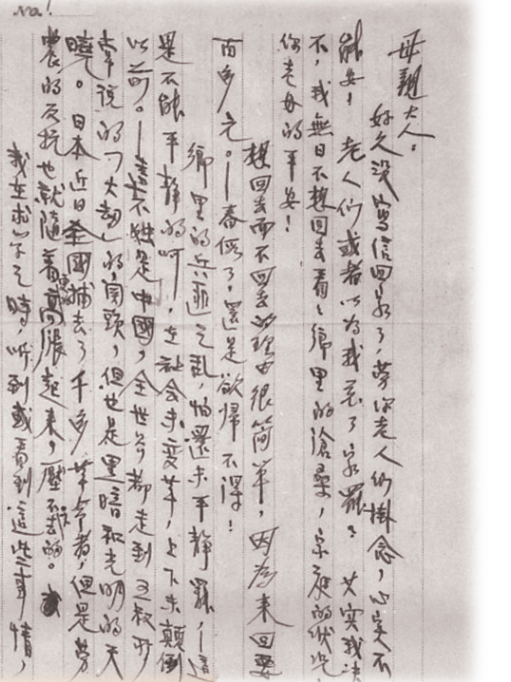 No.1
母親大人：
好久沒寫信回家了，勞你老人們掛念，心實不
能安！老人們或者以為我忘了家罷？其實我決
不，我無日不想回去看看鄉里的滄桑，家庭的狀況，
你老母的平安！
想回去而不回去的理由很簡單，因為來回要
百多元。——春假了，還是欲歸不得！
鄉里的兵匪之乱，怕還未平靜罷，——這
是不能平靜的呵！，在社会未变革，上下未顛倒
以前。——這不独是中國，全世界都走到三叔所
常說的「大劫」的関頭，但也是黑暗和光明的天
曉。日本近日全國捕去了千多革命者，但是勞
農的反抗也就隨着更高漲起來，壓不去的。
我在求学之時，听到或看到這些事情，